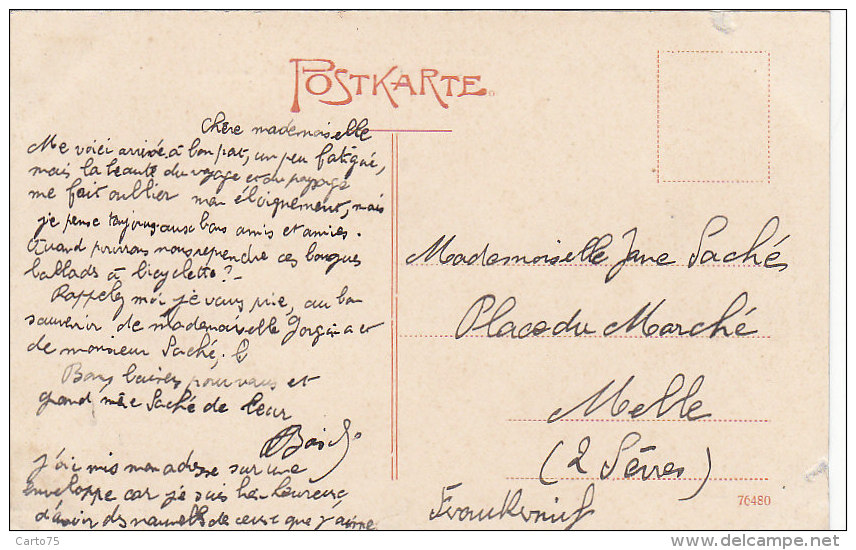 POSTKARTE
Chère mademoiselle
Me voici arrivée à bon port, un peu fatiguée,
mais la beauté du voyage et du paysage
me fait oublier mon éloignement, mais
je pense toujours aux bons amis et amies.
Quand pourrons nous reprendre ces longues
ballads à bicyclette ? -
Rappelez moi, je vous prie, au bon
souvenir de mademoiselle et
de monsieur Saché,
Bons baisers pour vous et
grand mère Saché de leur
j'ai mis mon adresse sur une
enveloppe car je suis heureuse
d'avoir des nouvelles de ceux que j'aime
Mademoiselle Jane Saché
Place du Marché
Melle
(2 Sèvres)
Frankreich
76480
Carto75
www.delcampe.net